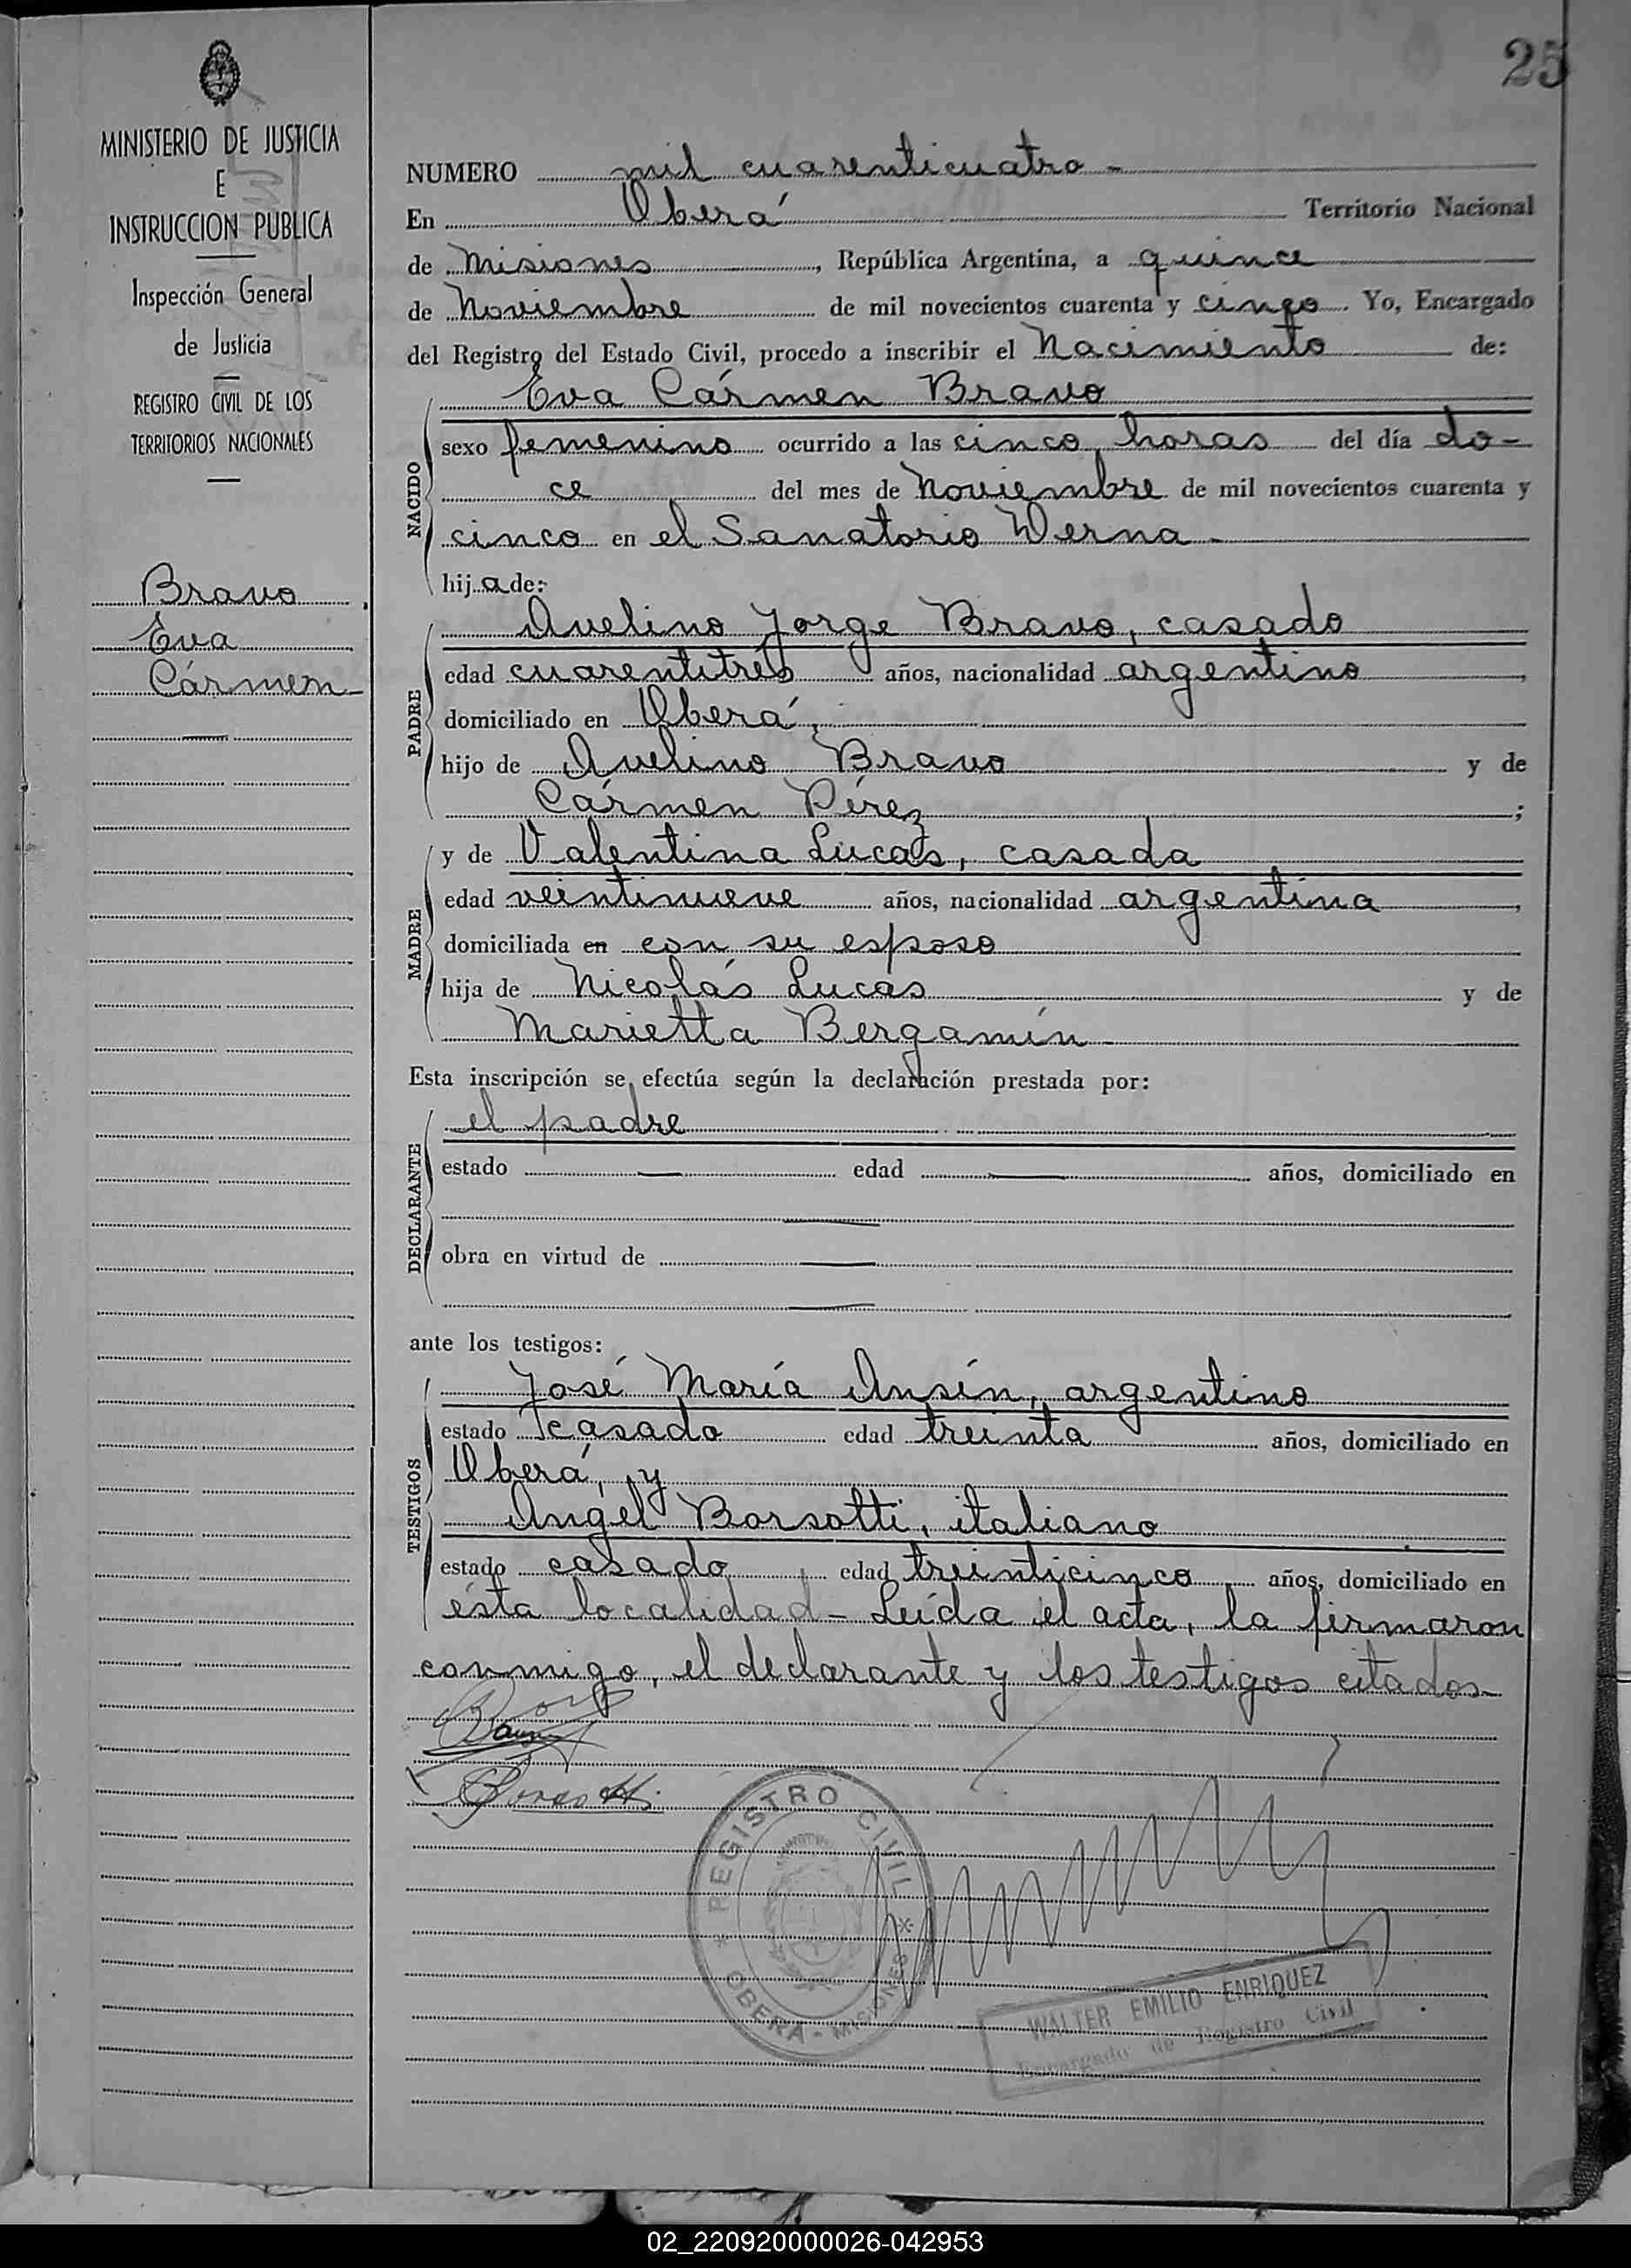 25
MINISTERIO DE JUSTICIA
E
INSTRUCCION PUBLICA
Inspección General
de Justicia
REGISTRO CIVIL DE LOS
TERRITORIOS NACIONALES
Bravo
Eva
Cármen
NUMERO mil cuarenticuatro
En Oberá Territorio Nacional
de Misiones, República Argentina, a quince
de Noviembre de mil novecientos cuarenta y cinco. Yo, Encargado
del Registro del Estado Civil, procedo a inscribir el Nacimiento de:
NACIDO
Eva Cármen Bravo
sexo femenino ocurrido a las cinco horas del día do-
ce del mes de Noviembre de mil novecientos cuarenta y
cinco en el Sanatorio Werna
hija de:
PADRE
Avelino Jorge Bravo, casado
edad cuarentitrés años, nacionalidad argentino,
domiciliado en Oberá,
hijo de Avelino Bravo y de
Cármen Pérez;
MADRE
y de Valentina Lucas, casada
edad veintinueve años, nacionalidad argentina,
domiciliada en con su esposo
hija de Nicolás Lucas y de
Marietta Bergamín
Esta inscripción se efectúa según la declaración prestada por:
DECLARANTE
el padre
estado — edad — años, domiciliado en
obra en virtud de —
ante los testigos:
TESTIGOS
José María Ansín, argentino
estado casado edad treinta años, domiciliado en
Oberá, y
Angel Borsotti, italiano
estado casado edad treinticinco años, domiciliado en
ésta localidad - Leída el acta, la firmaron
conmigo, el declarante y los testigos citados
Borsotti
REGISTRO CIVIL
OBERA - MISIONES
WALTER EMILIO ENRIQUEZ
Encargado de Registro Civil
02_220920000026-042953